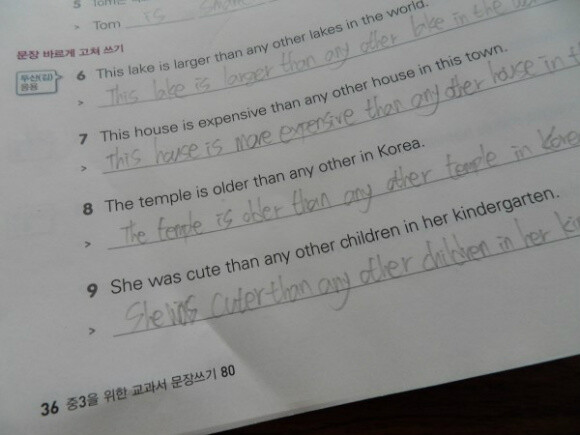 5
> Tom is
문장 바르게 고쳐 쓰기
두산(김) 응용
6 This lake is larger than any other lakes in the world.
> This lake is larger than any other lake in the
7 This house is expensive than any other house in this town.
> This house is more expensive than any other house in t
8 The temple is older than any other in Korea.
> The temple is older than any other temple in Kore
9 She was cute than any other children in her kindergarten.
> She was cuter than any other children in her kin
36 중3을 위한 교과서 문장쓰기 80